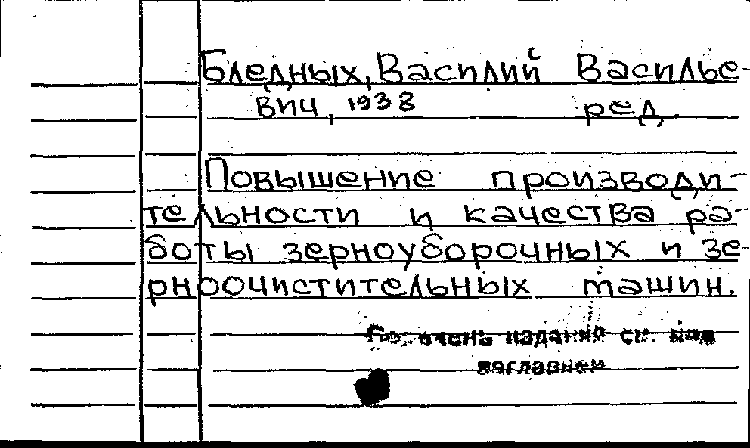 Бледных, Василий Василье-
вич, 1938 ред.
Повышение производи-
тельности и качества ра-
боты зерноуборочных и зе-
рноочистительных машин.
очень издания см. под
заглавием